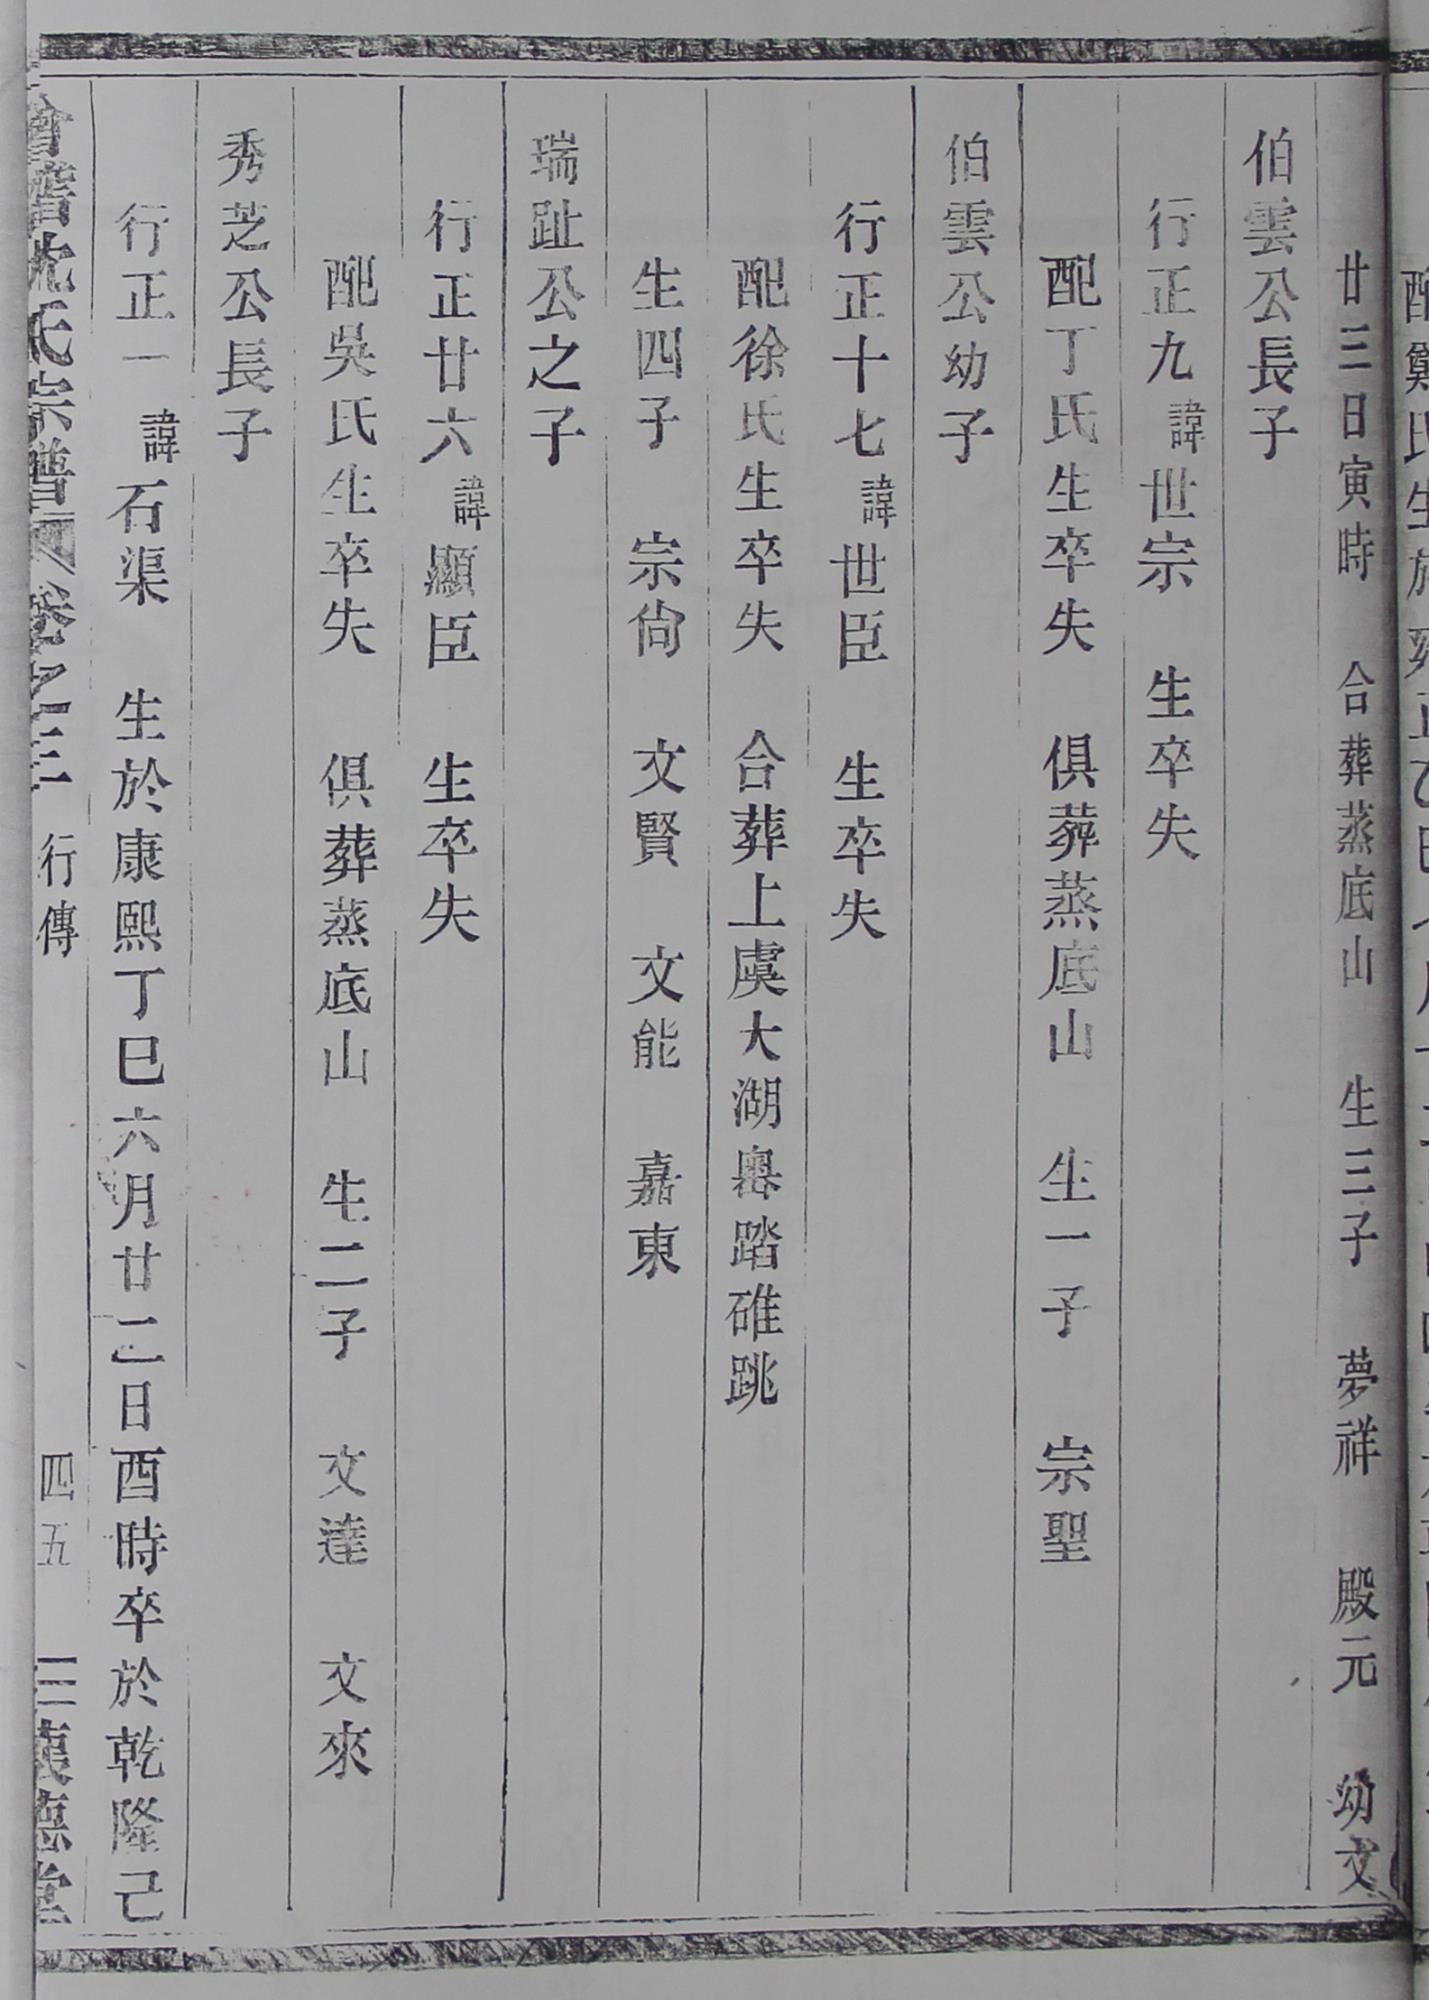 配鄭氏生於雍正
廿三日寅時　合葬蒸底山　生三子　夢祥　殿元　幼文
伯雲公長子
行正九諱世宗　生卒失
配丁氏生卒失　俱葬蒸底山　生一子　宗聖
伯雲公幼子
行正十七諱世臣　生卒失
配徐氏生卒失　合葬上虞大湖嶴踏碓跳
生四子　宗尙　文賢　文能　嘉東
瑞趾公之子
行正廿六諱顯臣　生卒失
配吳氏生卒失　俱葬蒸底山　生二子　文達　文來
秀芝公長子
行正一諱石渠　生於康熙丁巳六月廿二日酉時卒於乾隆己
會稽沈氏宗譜　卷之三　行傳　四五　三僕德堂